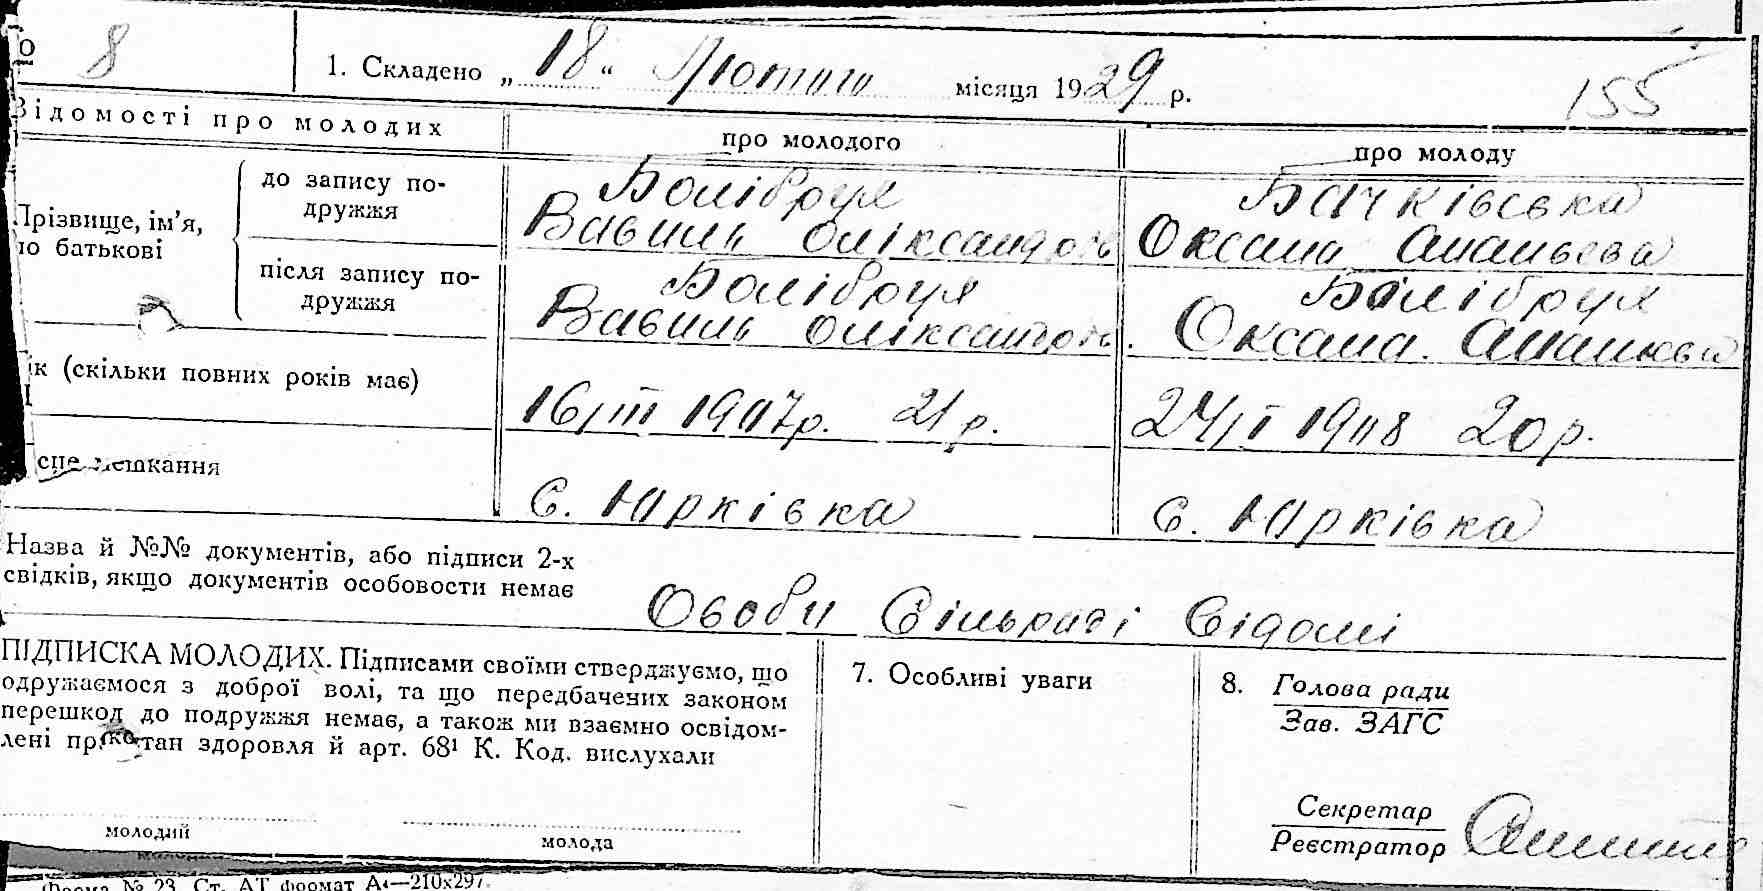 № 8
1. Складено „ 18 “ Лютого місяця 1929 р.
155
Відомості про молодих
про молодого
про молоду
Прізвище, ім’я, по батькові
до запису подружжя
Болібрух
Вавиль Оліксандров
Бачківська
Оксана Ананьєва
після запису подружжя
Болібрух
Вавиль Оліксандров
Болібрух
Оксана Ананьєва
Вік (скільки повних років має)
16/III 1907р. 21 р.
24/I 1908 20 р.
Місце мешкання
с. Юрківка
с. Юрківка
Назва й №№ документів, або підписи 2-х
свідків, якщо документів особовости немає
Особи Сільраді відомі
ПІДПИСКА МОЛОДИХ. Підписами своїми стверджуємо, що
одружаємося з доброї волі, та що передбачених законом
перешкод до подружжя немає, а також ми взаємно освідом-
лені про стан здоровля й арт. 68¹ К. Код. вислухали
молодий
молода
7. Особливі уваги
—
8. Голова ради
Зав. ЗАГС
Секретар
Реєстратор
Форма № 23. Ст. АТ формат А4—210х297.